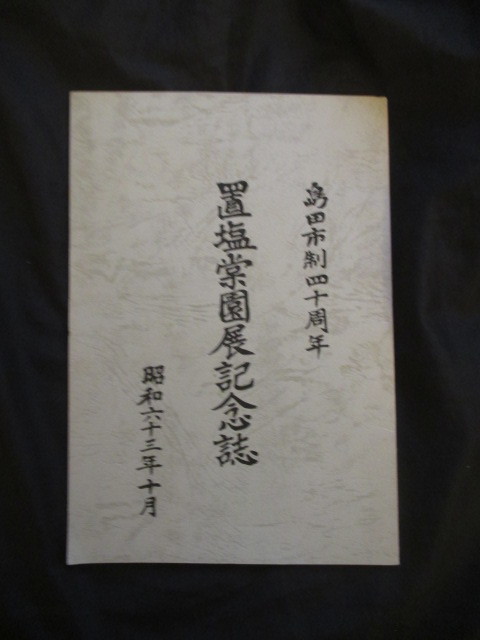 島田市制四十周年
置塩棠園展記念誌
昭和六十三年十月